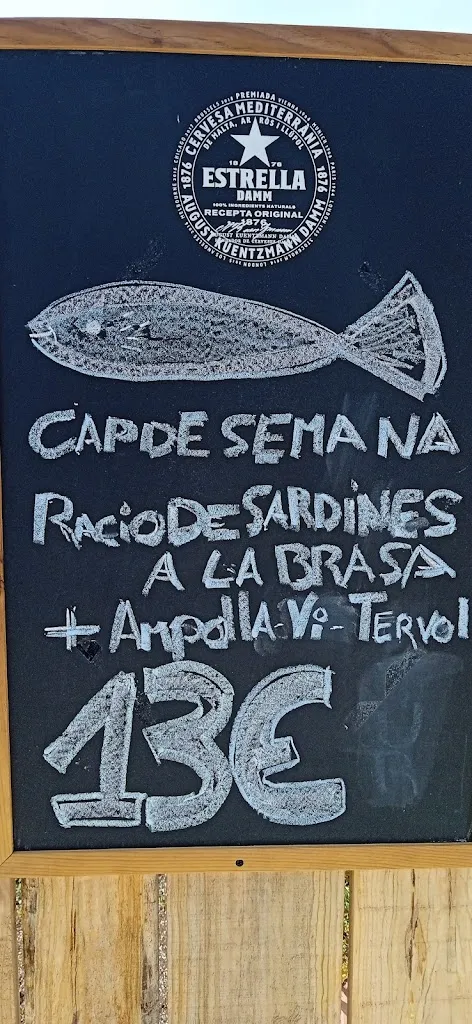 CERVESA MEDITERRÀNIA
DE MALTA, ARRÒS I LLÚPOL
1876
1876
1876
ESTRELLA
DAMM
100% INGREDIENTS NATURALS
RECEPTA ORIGINAL
1876
AUGUST KUENTZMANN DAMM
CAP DE SEMANA
RACIO DE SARDINES
A LA BRASA
+ Ampolla-Vi-TERVOL
13€